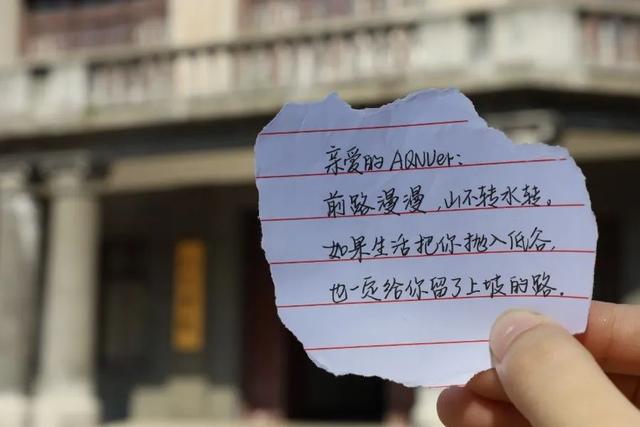 亲爱的 AQNUer:
前路漫漫,山不转水转。
如果生活把你抛入低谷,
也一定给你留了上坡的路.